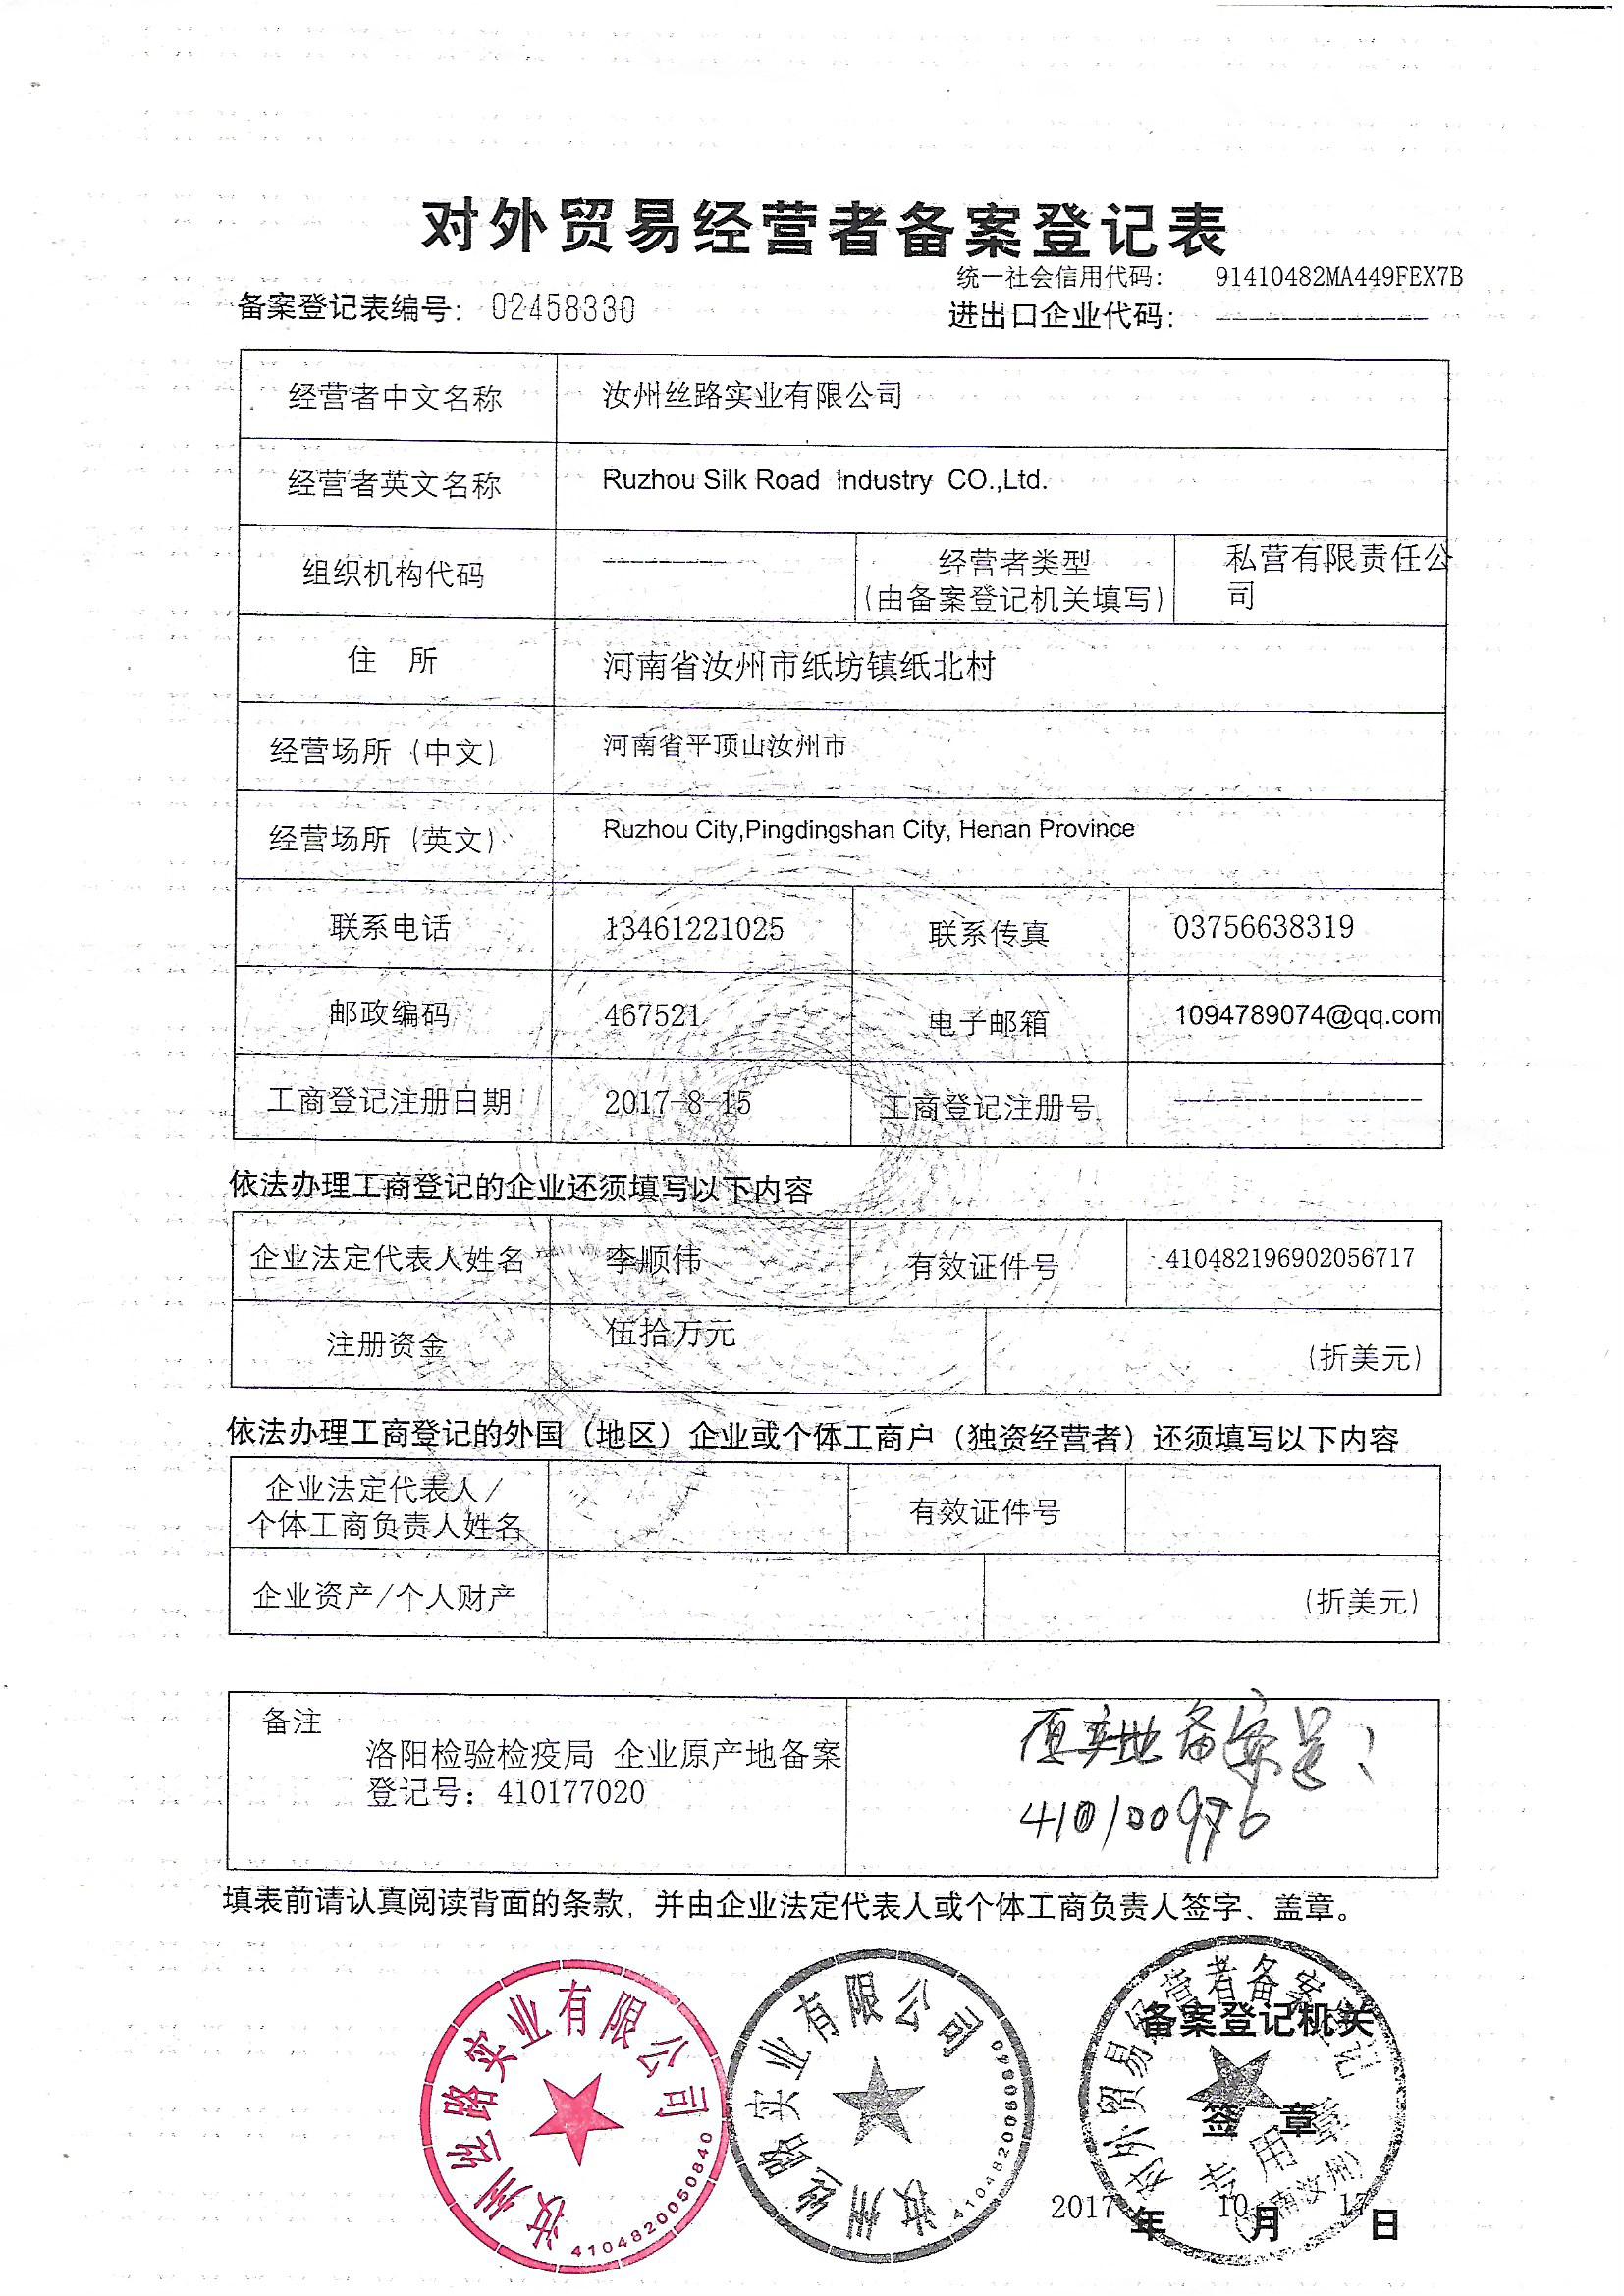 对外贸易经营者备案登记表
统一社会信用代码： 91410482MA449FEX7B
备案登记表编号： 02458330
进出口企业代码： -------------
经营者中文名称 汝州丝路实业有限公司
经营者英文名称 Ruzhou Silk Road Industry CO.,Ltd.
组织机构代码 ------------- 经营者类型 私营有限责任公
(由备案登记机关填写) 司
住 所 河南省汝州市纸坊镇纸北村
经营场所（中文） 河南省平顶山汝州市
经营场所（英文） Ruzhou City,Pingdingshan City, Henan Province
联系电话 13461221025 联系传真 03756638319
邮政编码 467521 电子邮箱 1094789074@qq.com
工商登记注册日期 2017-8-15 工商登记注册号 -------------
依法办理工商登记的企业还须填写以下内容
企业法定代表人姓名 李顺伟 有效证件号 410482196902056717
注册资金 伍拾万元 (折美元)
依法办理工商登记的外国（地区）企业或个体工商户（独资经营者）还须填写以下内容
企业法定代表人/
个体工商负责人姓名 有效证件号
企业资产/个人财产 (折美元)
备注
洛阳检验检疫局 企业原产地备案
登记号：410177020
原产地备案是：
填表前请认真阅读背面的条款，并由企业法定代表人或个体工商负责人签字、盖章。
汝州丝路实业有限公司
4104820050840
汝州丝路实业有限公司
对外贸易经营者备案登记
专用章
(河南汝州)
备案登记机关
签 章
2017 年 10 月 17 日